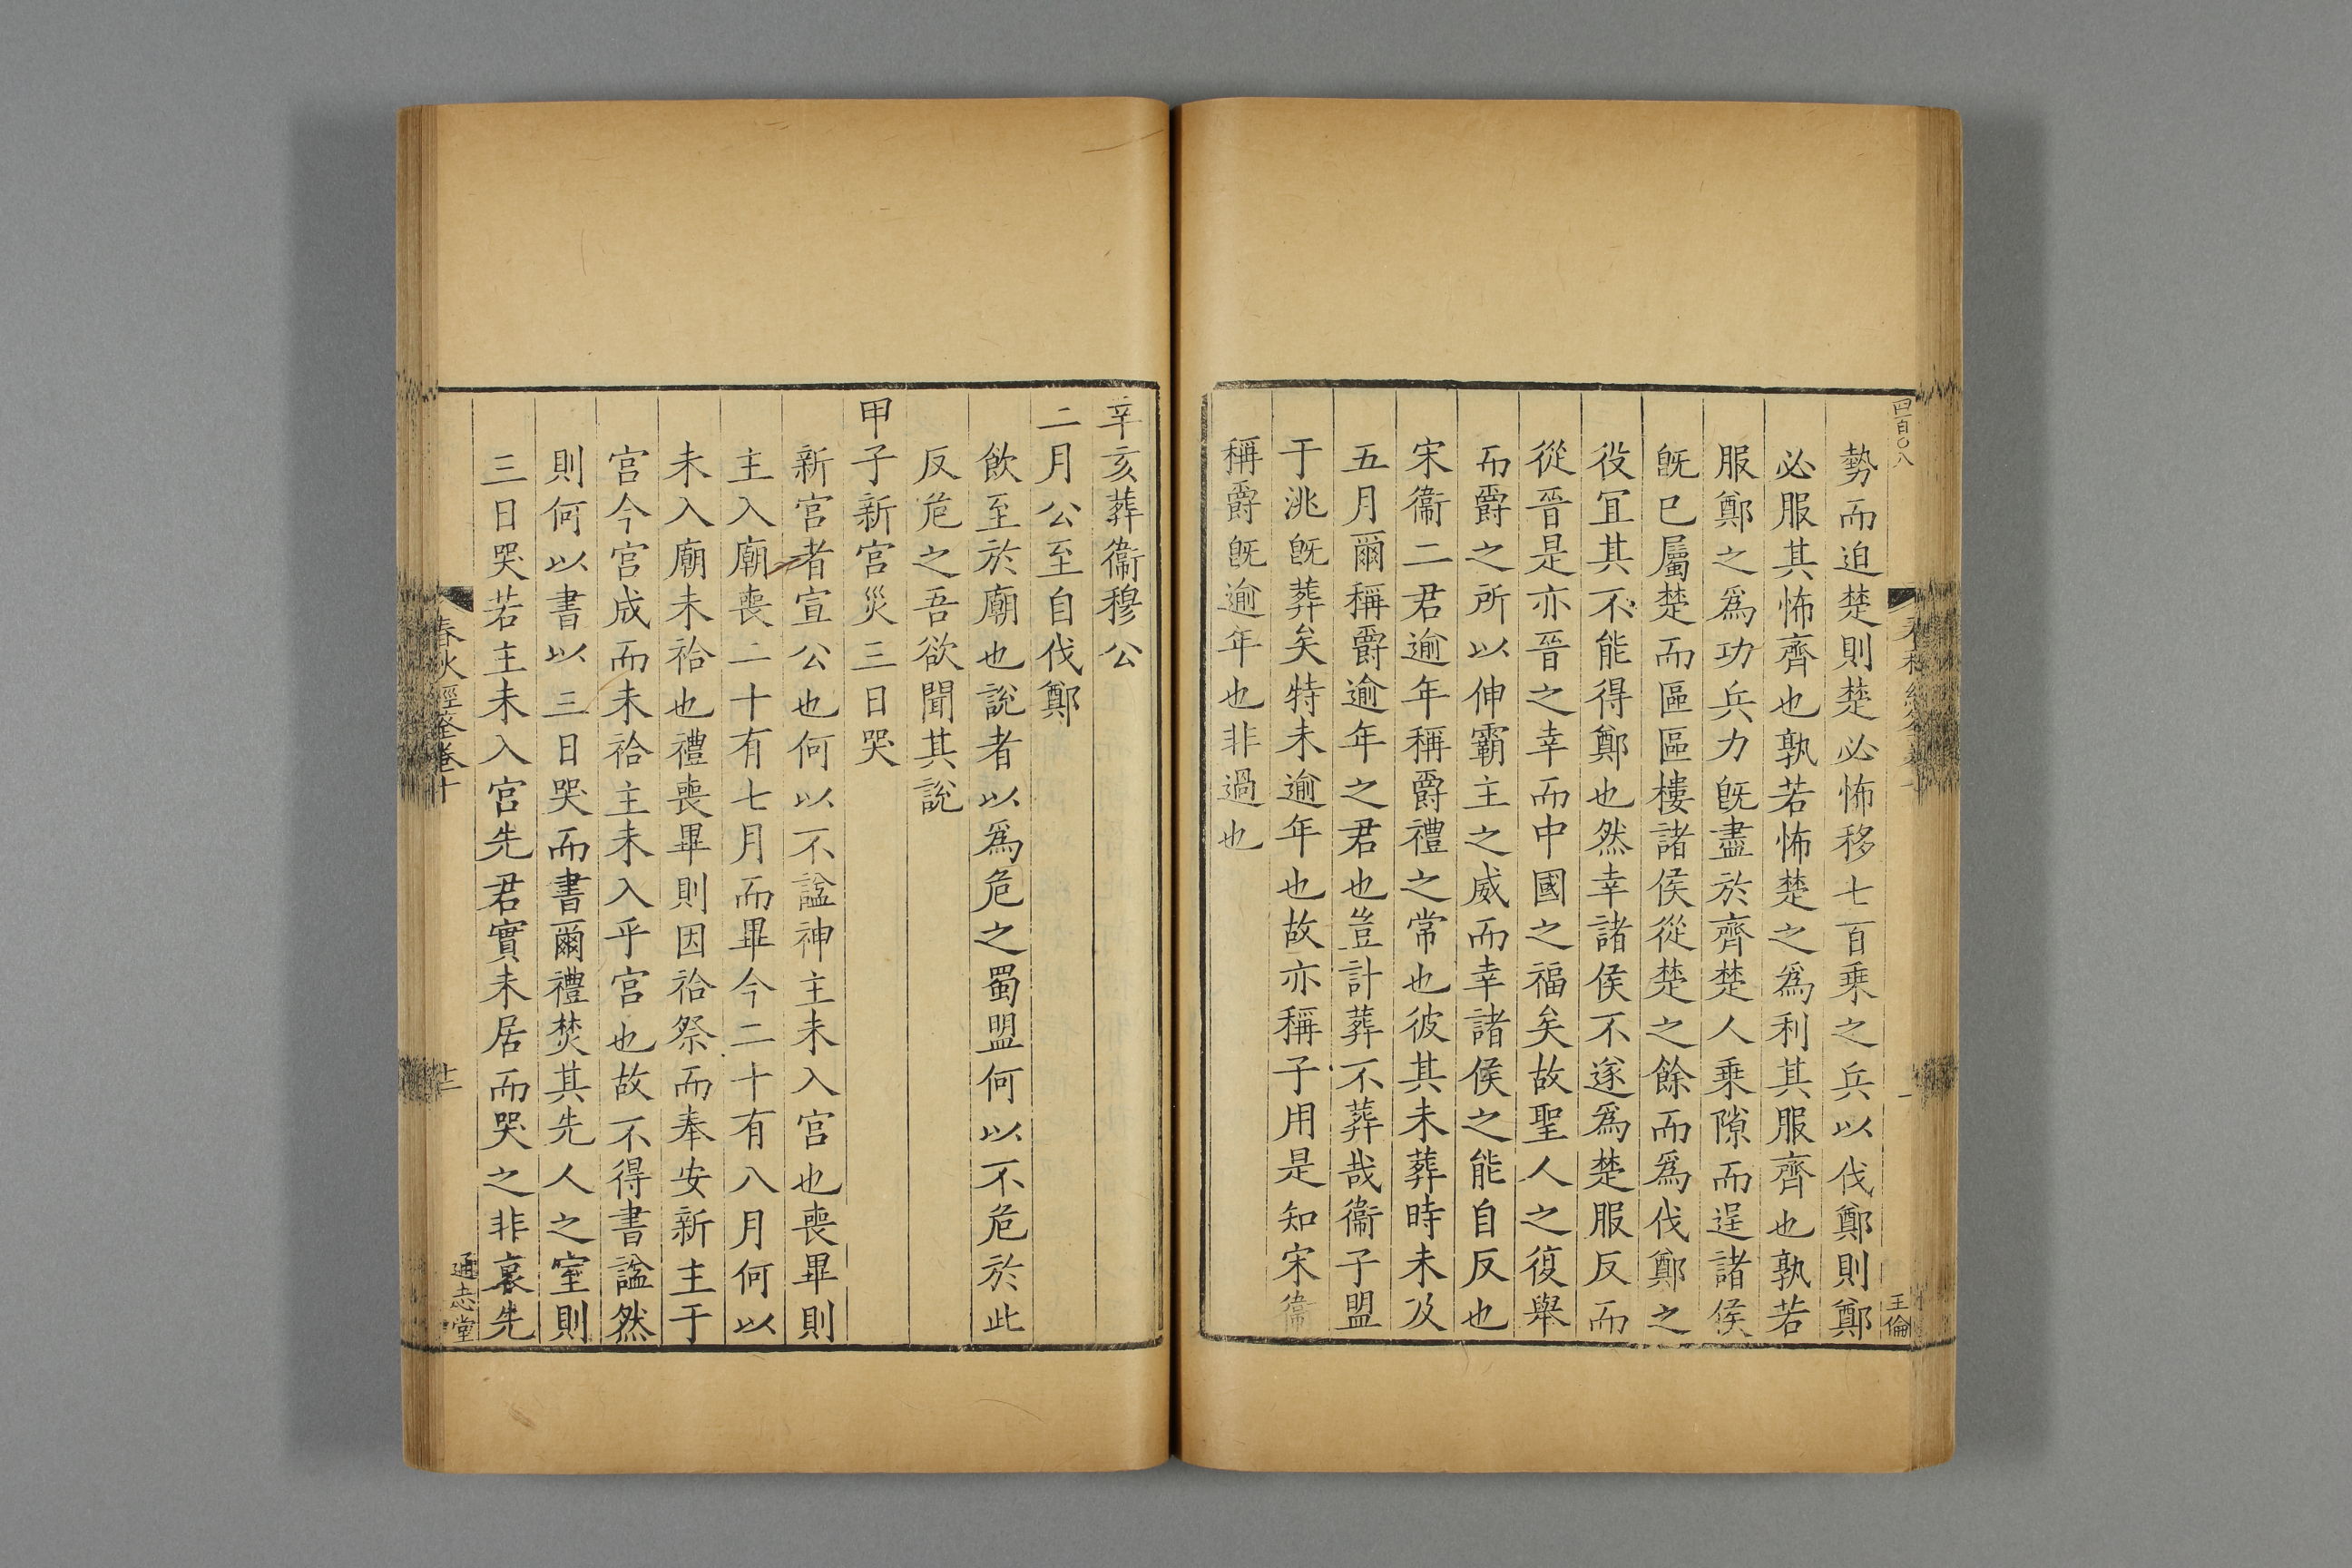 四百〇八
王倫
勢而迫楚則楚必怖移七百乗之兵以伐鄭則鄭
必服其怖齊也孰若怖楚之爲利其服齊也孰若
服鄭之爲功兵力旣盡於齊楚人乗隙而逞諸侯
旣已屬楚而區區樓諸侯從楚之餘而爲伐鄭之
役宜其不能得鄭也然幸諸侯不遂爲楚服反而
從晉是亦晉之幸而中國之福矣故聖人之復舉
而爵之所以伸霸主之威而幸諸侯之能自反也
宋衞二君逾年稱爵禮之常也彼其未葬時未及
五月爾稱爵逾年之君也豈計葬不葬哉衞子盟
于洮旣葬矣特未逾年也故亦稱子用是知宋衞
稱爵旣逾年也非過也
辛亥葬衞穆公
二月公至自伐鄭
飲至於廟也說者以爲危之蜀盟何以不危於此
反危之吾欲聞其說
甲子新宮災三日哭
新宮者宣公也何以不諡神主未入宮也喪畢則
主入廟喪二十有七月而畢今二十有八月何以
未入廟未祫也禮喪畢則因祫祭而奉安新主于
宮今宮成而未祫主未入乎宮也故不得書諡然
則何以書以三日哭而書爾禮焚其先人之室則
三日哭若主未入宮先君實未居而哭之非哀先
春秋經筌卷十
十二
通志堂